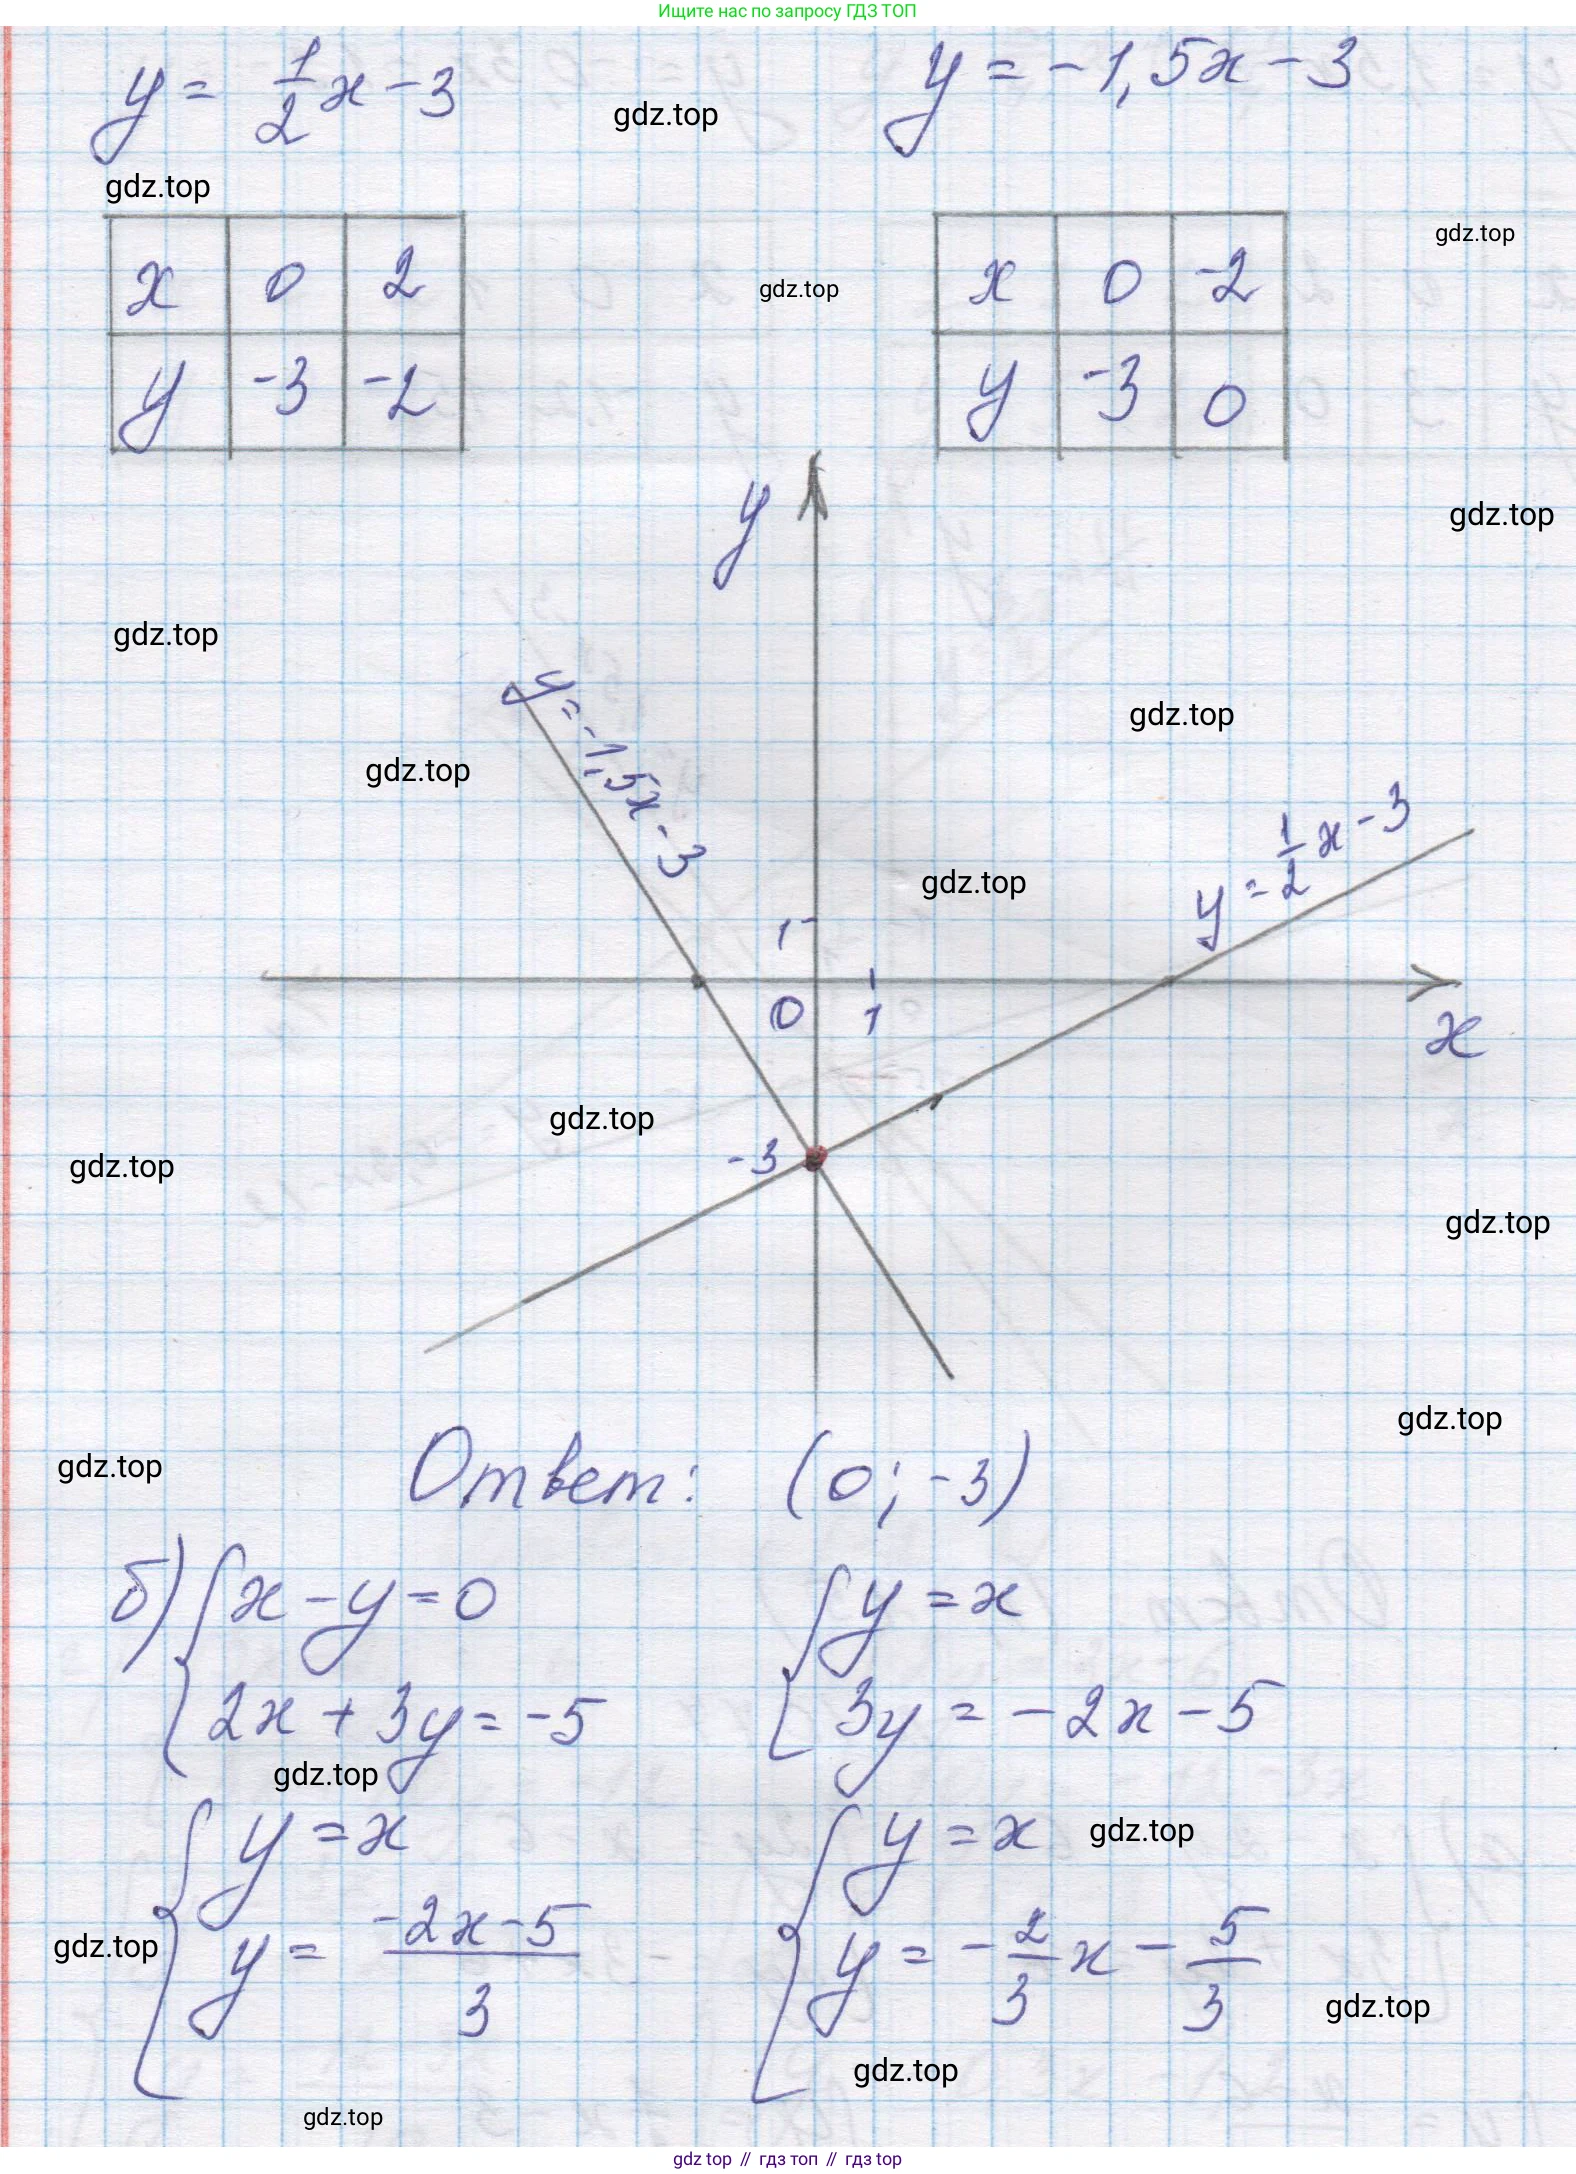 Ищите нас по запросу ГДЗ ТОП
y = 1/2 x - 3
y = -1,5x - 3
gdz.top
gdz.top
gdz.top
gdz.top
x 0 2
y -3 -2
x 0 -2
y -3 0
y
gdz.top
gdz.top
gdz.top
gdz.top
y = -1,5x - 3
y = 1/2 x - 3
gdz.top
1
0 1
x
gdz.top
-3
gdz.top
gdz.top
gdz.top
Ответ: (0; -3)
gdz.top
б) { x - y = 0
2x + 3y = -5
{ y = x
3y = -2x - 5
gdz.top
{ y = x
y = (-2x - 5)/3
{ y = x
y = -2/3 x - 5/3
gdz.top
gdz.top
gdz.top
gdz.top
gdz.top
gdz top // гдз топ // гдз top